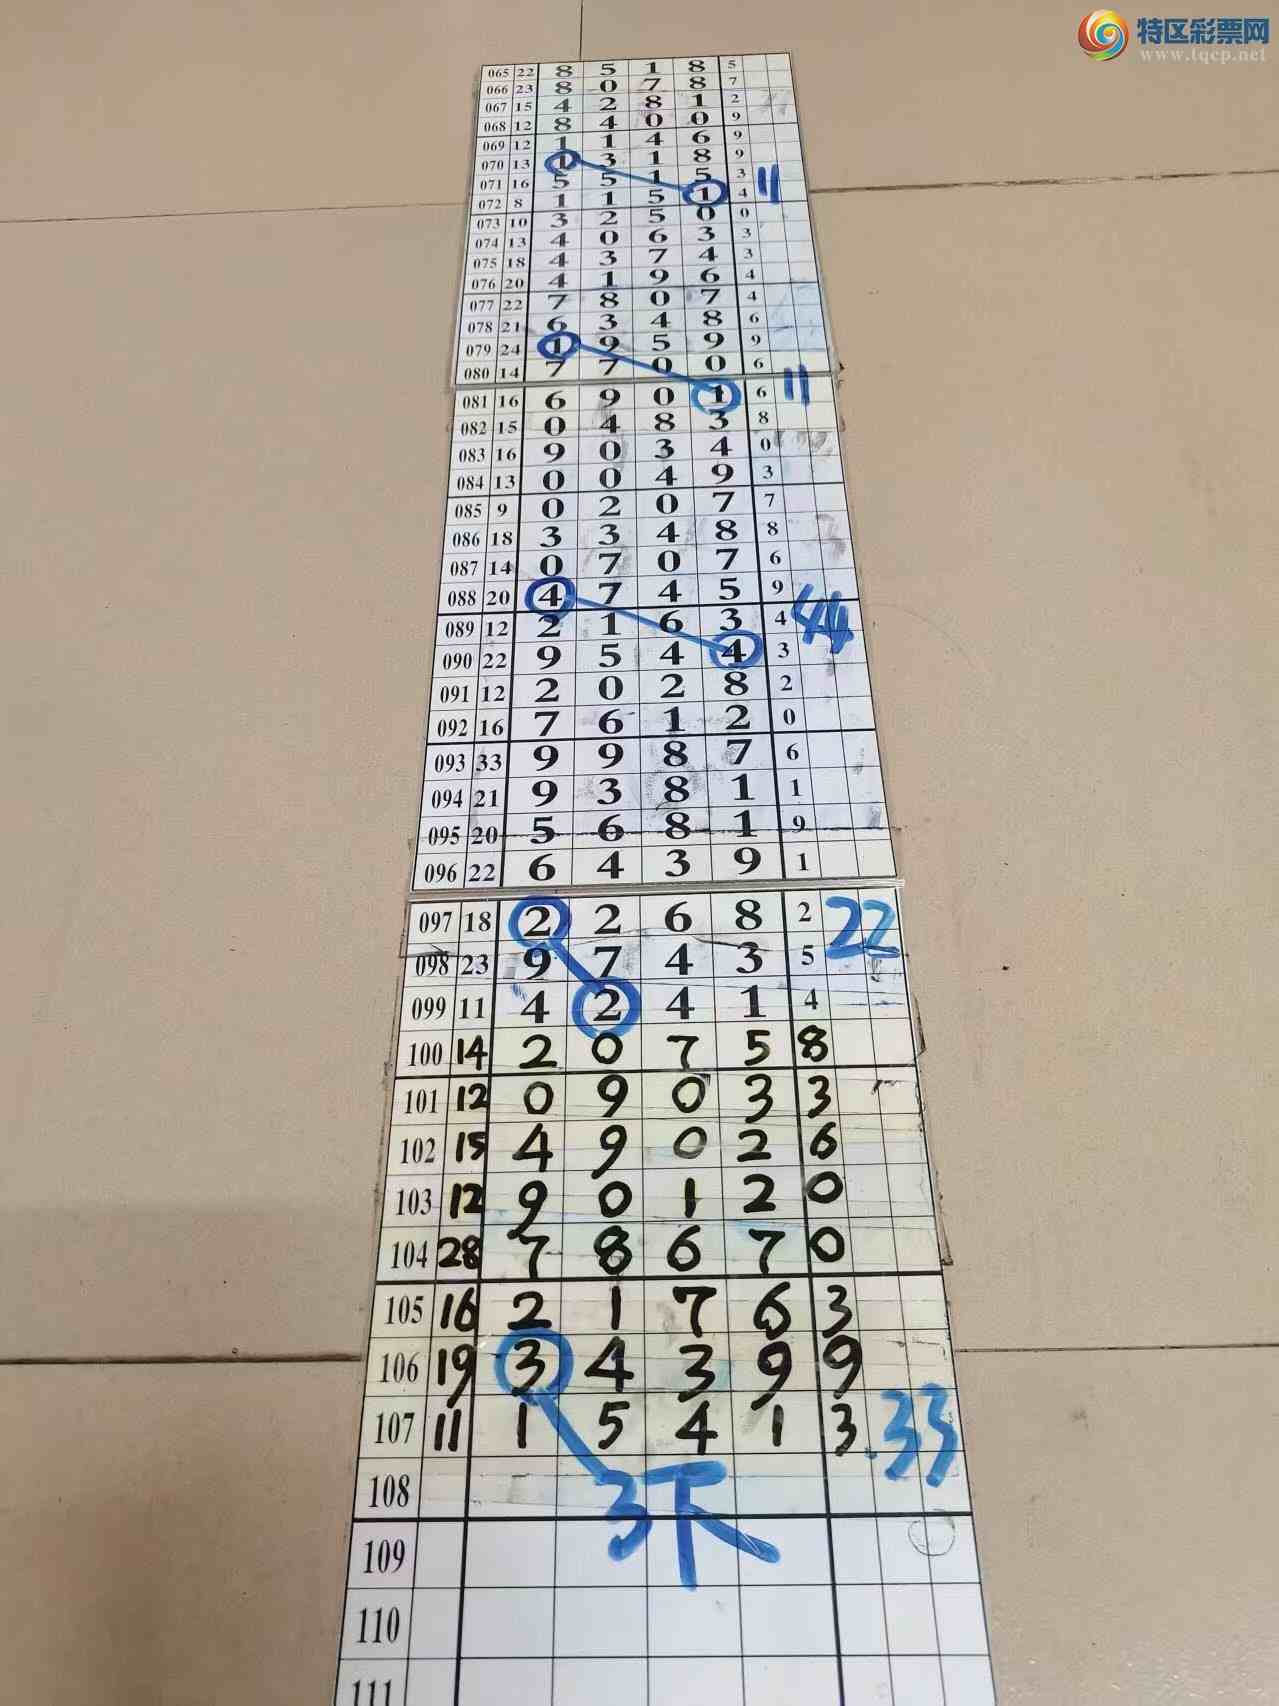 特区彩票网
www.tqcp.net
065 22 8 5 1 8 5
066 23 8 0 7 8 7
067 15 4 2 8 1 2
068 12 8 4 0 0 9
069 12 1 1 4 6 9
070 13 1 3 1 8 9
071 16 5 5 1 5 3 11
072 8 1 1 5 1 4
073 10 3 2 5 0 0
074 13 4 0 6 3 3
075 18 4 3 7 4 3
076 20 4 1 9 6 4
077 22 7 8 0 7 4
078 21 6 3 4 8 6
079 24 1 9 5 9 9
080 14 7 7 0 0 6
081 16 6 9 0 1 6 11
082 15 0 4 8 3 8
083 16 9 0 3 4 0
084 13 0 0 4 9 3
085 9 0 2 0 7 7
086 18 3 3 4 8 8
087 14 0 7 0 7 6
088 20 4 7 4 5 9
089 12 2 1 6 3 4 44
090 22 9 5 4 4 3
091 12 2 0 2 8 2
092 16 7 6 1 2 0
093 33 9 9 8 7 6
094 21 9 3 8 1 1
095 20 5 6 8 1 9
096 22 6 4 3 9 1
097 18 2 2 6 8 2 22
098 23 9 7 4 3 5
099 11 4 2 4 1 4
100 14 2 0 7 5 8
101 12 0 9 0 3 3
102 15 4 9 0 2 6
103 12 9 0 1 2 0
104 28 7 8 6 7 0
105 16 2 1 7 6 3
106 19 3 4 3 9 9
107 11 1 5 4 1 3 .33
108 3下
109
110
111